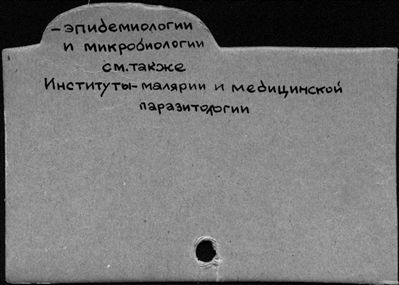 -эпидемиологии
и микробиологии
см.также
Институты-малярии и медицинской
паразитологии